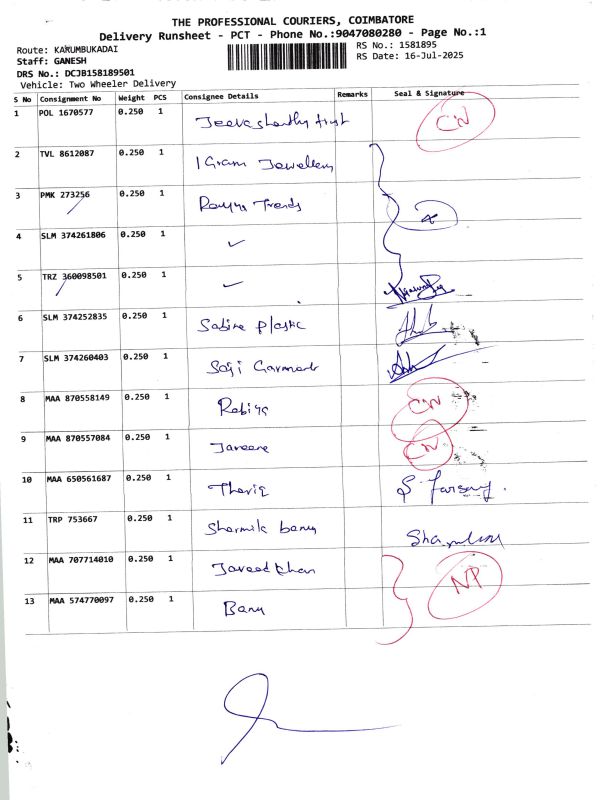 THE PROFESSIONAL COURIERS, COIMBATORE
Delivery Runsheet - PCT - Phone No.:9047080280 - Page No.:1
Route: KARUMBUKADAI
RS No.: 1581895
Staff: GANESH
RS Date: 16-Jul-2025
DRS No.: DCJB158189501
Vehicle: Two Wheeler Delivery
S No Consignment No Weight PCS Consignee Details Remarks Seal & Signature
1 POL 1670577 0.250 1 CN
2 TVL 8612087 0.250 1 1 Gram Jewellery
3 PMK 273256 0.250 1 Trends
4 SLM 374261806 0.250 1 ✓
5 TRZ 360098501 0.250 1 ✓
6 SLM 374252835 0.250 1 Plastic
7 SLM 374260403 0.250 1
8 MAA 870558149 0.250 1 Rabiya CN
9 MAA 870557084 0.250 1 CN
10 MAA 650561687 0.250 1 Thariq
11 TRP 753667 0.250 1 Sharmila banu
12 MAA 707714010 0.250 1 Javeed khan NP
13 MAA 574770097 0.250 1 Banu